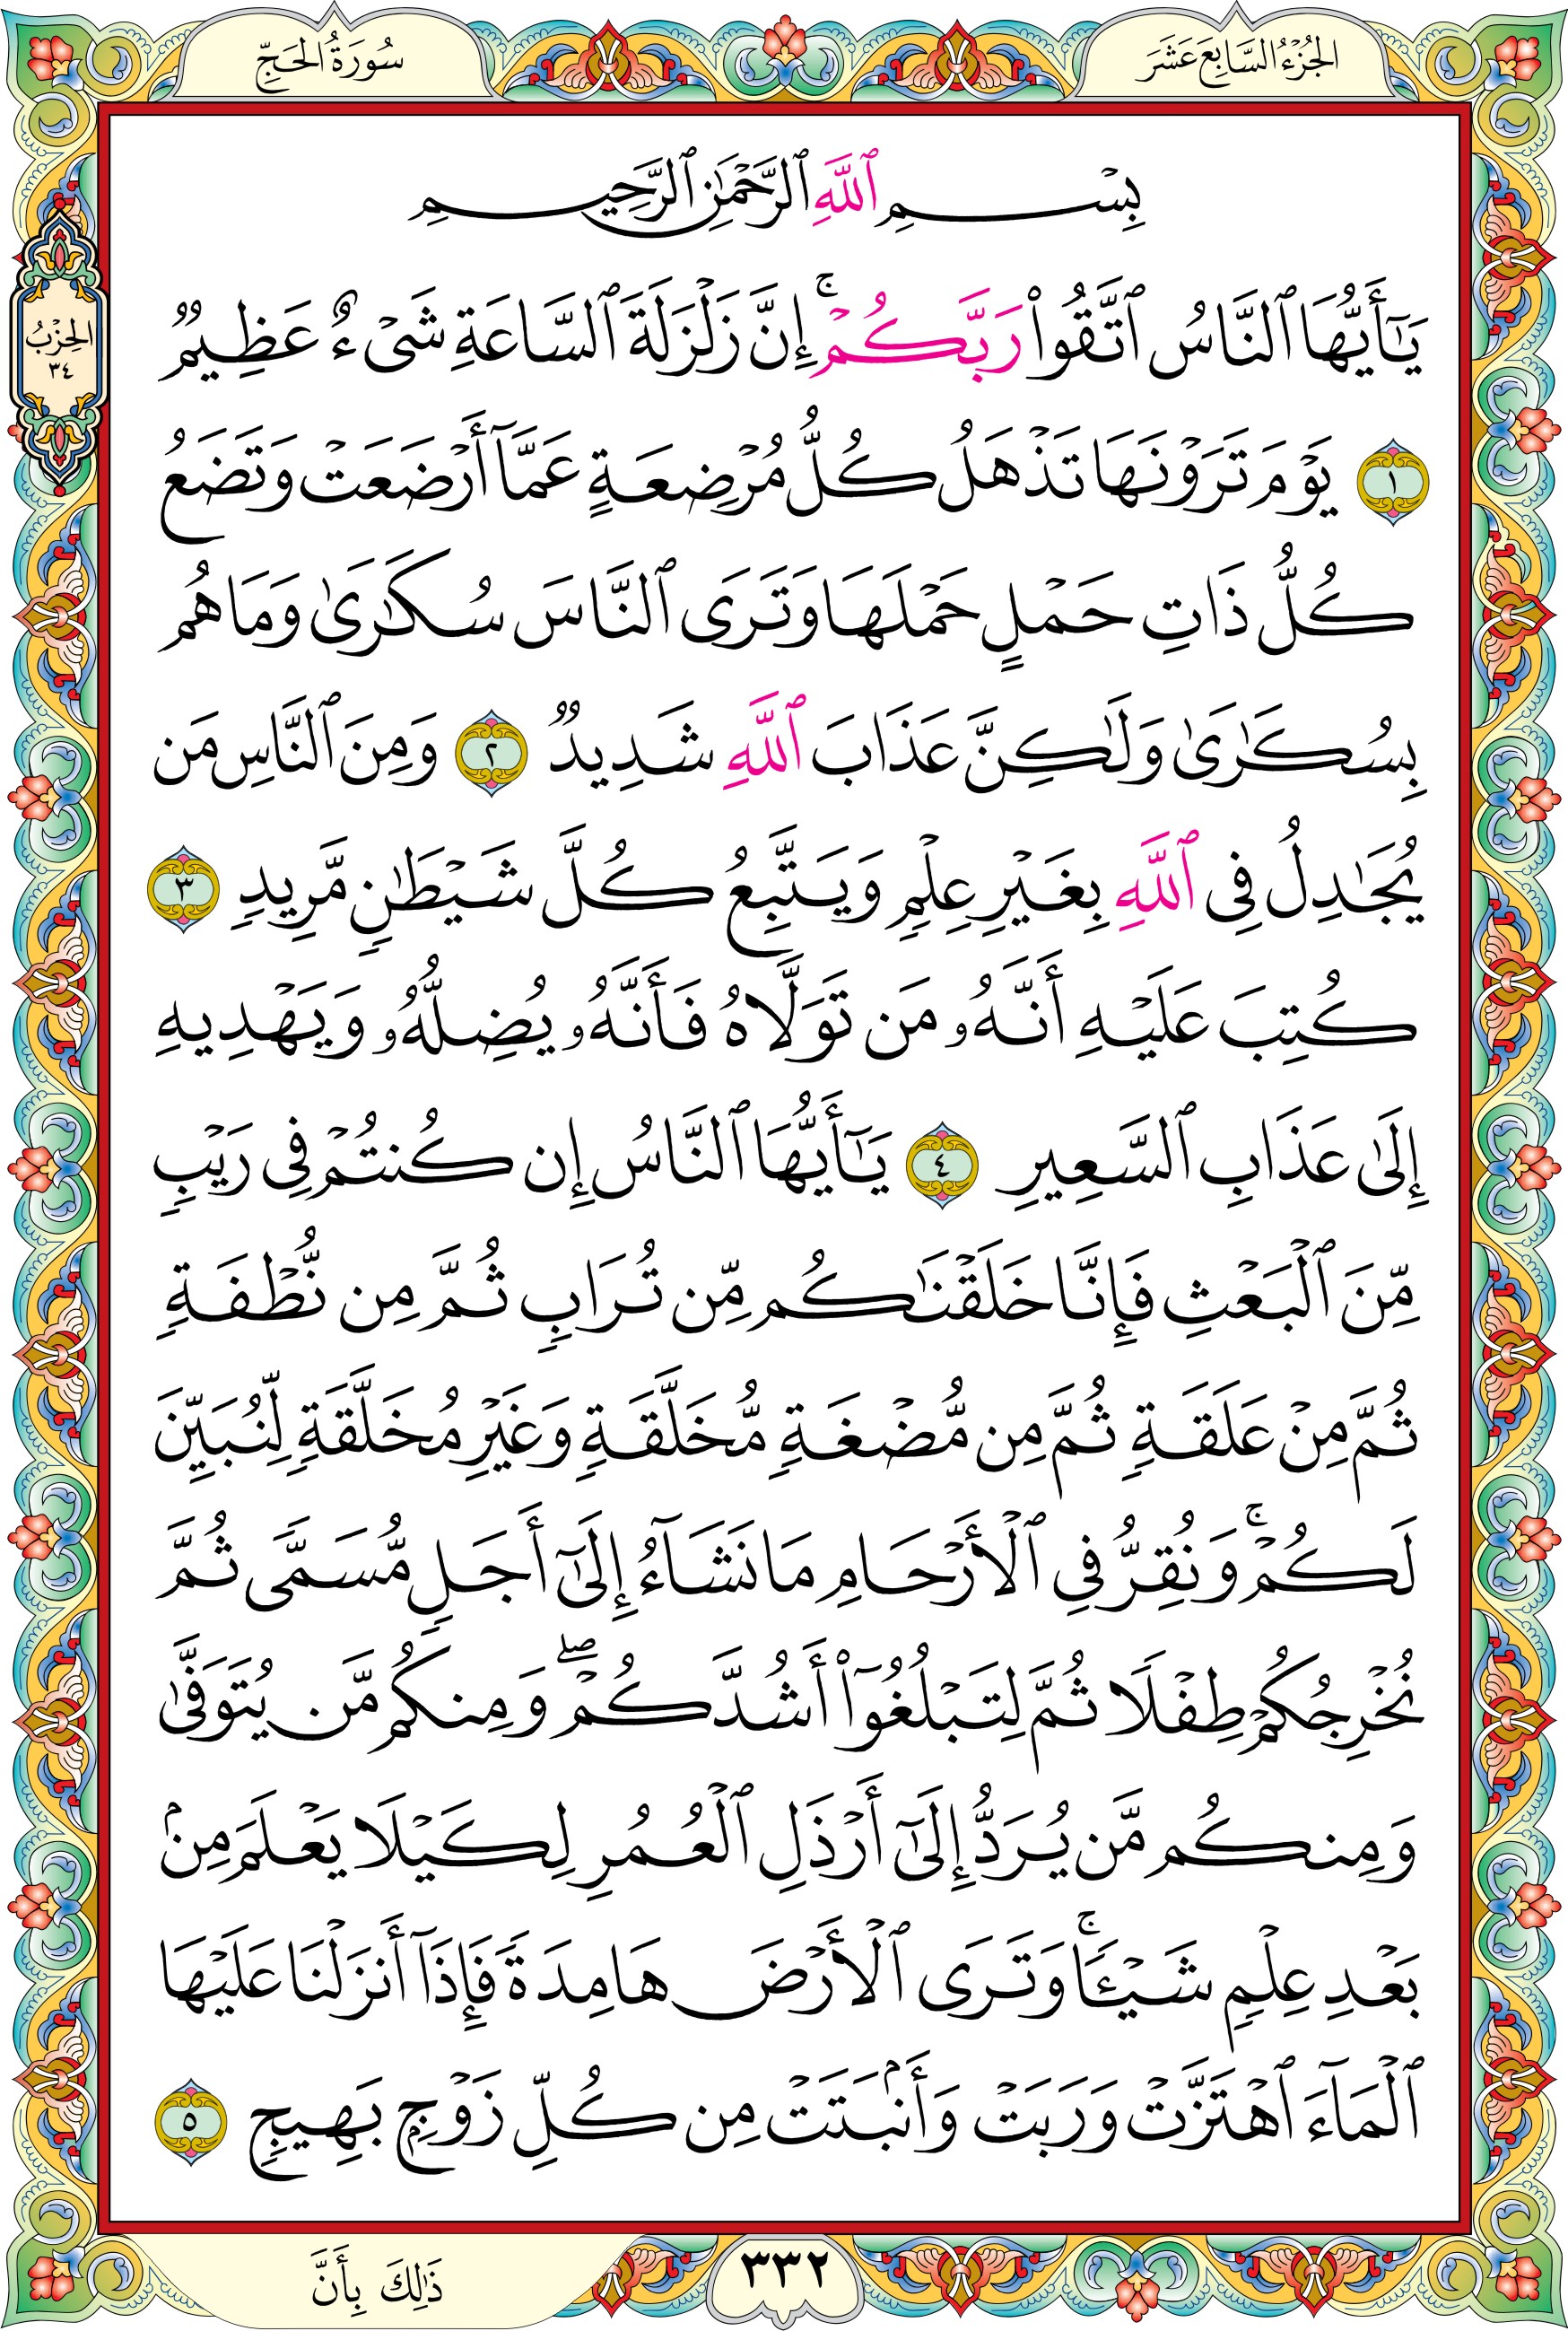 الجُزْءُ السَّابِعَ عَشَرَ
سُورَةُ الحَجِّ
الحِزْبُ
٣٤
بِسْمِ ٱللَّهِ ٱلرَّحْمَٰنِ ٱلرَّحِيمِ
يَٰٓأَيُّهَا ٱلنَّاسُ ٱتَّقُوا۟ رَبَّكُمْ ۚ إِنَّ زَلْزَلَةَ ٱلسَّاعَةِ شَىْءٌ عَظِيمٌ
١ يَوْمَ تَرَوْنَهَا تَذْهَلُ كُلُّ مُرْضِعَةٍ عَمَّآ أَرْضَعَتْ وَتَضَعُ
كُلُّ ذَاتِ حَمْلٍ حَمْلَهَا وَتَرَى ٱلنَّاسَ سُكَٰرَىٰ وَمَا هُم
بِسُكَٰرَىٰ وَلَٰكِنَّ عَذَابَ ٱللَّهِ شَدِيدٌ ٢ وَمِنَ ٱلنَّاسِ مَن
يُجَٰدِلُ فِى ٱللَّهِ بِغَيْرِ عِلْمٍ وَيَتَّبِعُ كُلَّ شَيْطَٰنٍ مَّرِيدٍ ٣
كُتِبَ عَلَيْهِ أَنَّهُۥ مَن تَوَلَّاهُ فَأَنَّهُۥ يُضِلُّهُۥ وَيَهْدِيهِ
إِلَىٰ عَذَابِ ٱلسَّعِيرِ ٤ يَٰٓأَيُّهَا ٱلنَّاسُ إِن كُنتُمْ فِى رَيْبٍ
مِّنَ ٱلْبَعْثِ فَإِنَّا خَلَقْنَٰكُم مِّن تُرَابٍ ثُمَّ مِن نُّطْفَةٍ
ثُمَّ مِنْ عَلَقَةٍ ثُمَّ مِن مُّضْغَةٍ مُّخَلَّقَةٍ وَغَيْرِ مُخَلَّقَةٍ لِّنُبَيِّنَ
لَكُمْ ۚ وَنُقِرُّ فِى ٱلْأَرْحَامِ مَا نَشَآءُ إِلَىٰٓ أَجَلٍ مُّسَمًّى ثُمَّ
نُخْرِجُكُمْ طِفْلًا ثُمَّ لِتَبْلُغُوٓا۟ أَشُدَّكُمْ ۖ وَمِنكُم مَّن يُتَوَفَّىٰ
وَمِنكُم مَّن يُرَدُّ إِلَىٰٓ أَرْذَلِ ٱلْعُمُرِ لِكَيْلَا يَعْلَمَ مِنۢ
بَعْدِ عِلْمٍ شَيْـًٔا ۚ وَتَرَى ٱلْأَرْضَ هَامِدَةً فَإِذَآ أَنزَلْنَا عَلَيْهَا
ٱلْمَآءَ ٱهْتَزَّتْ وَرَبَتْ وَأَنۢبَتَتْ مِن كُلِّ زَوْجٍۭ بَهِيجٍ ٥
٣٣٢
ذَٰلِكَ بِأَنَّ